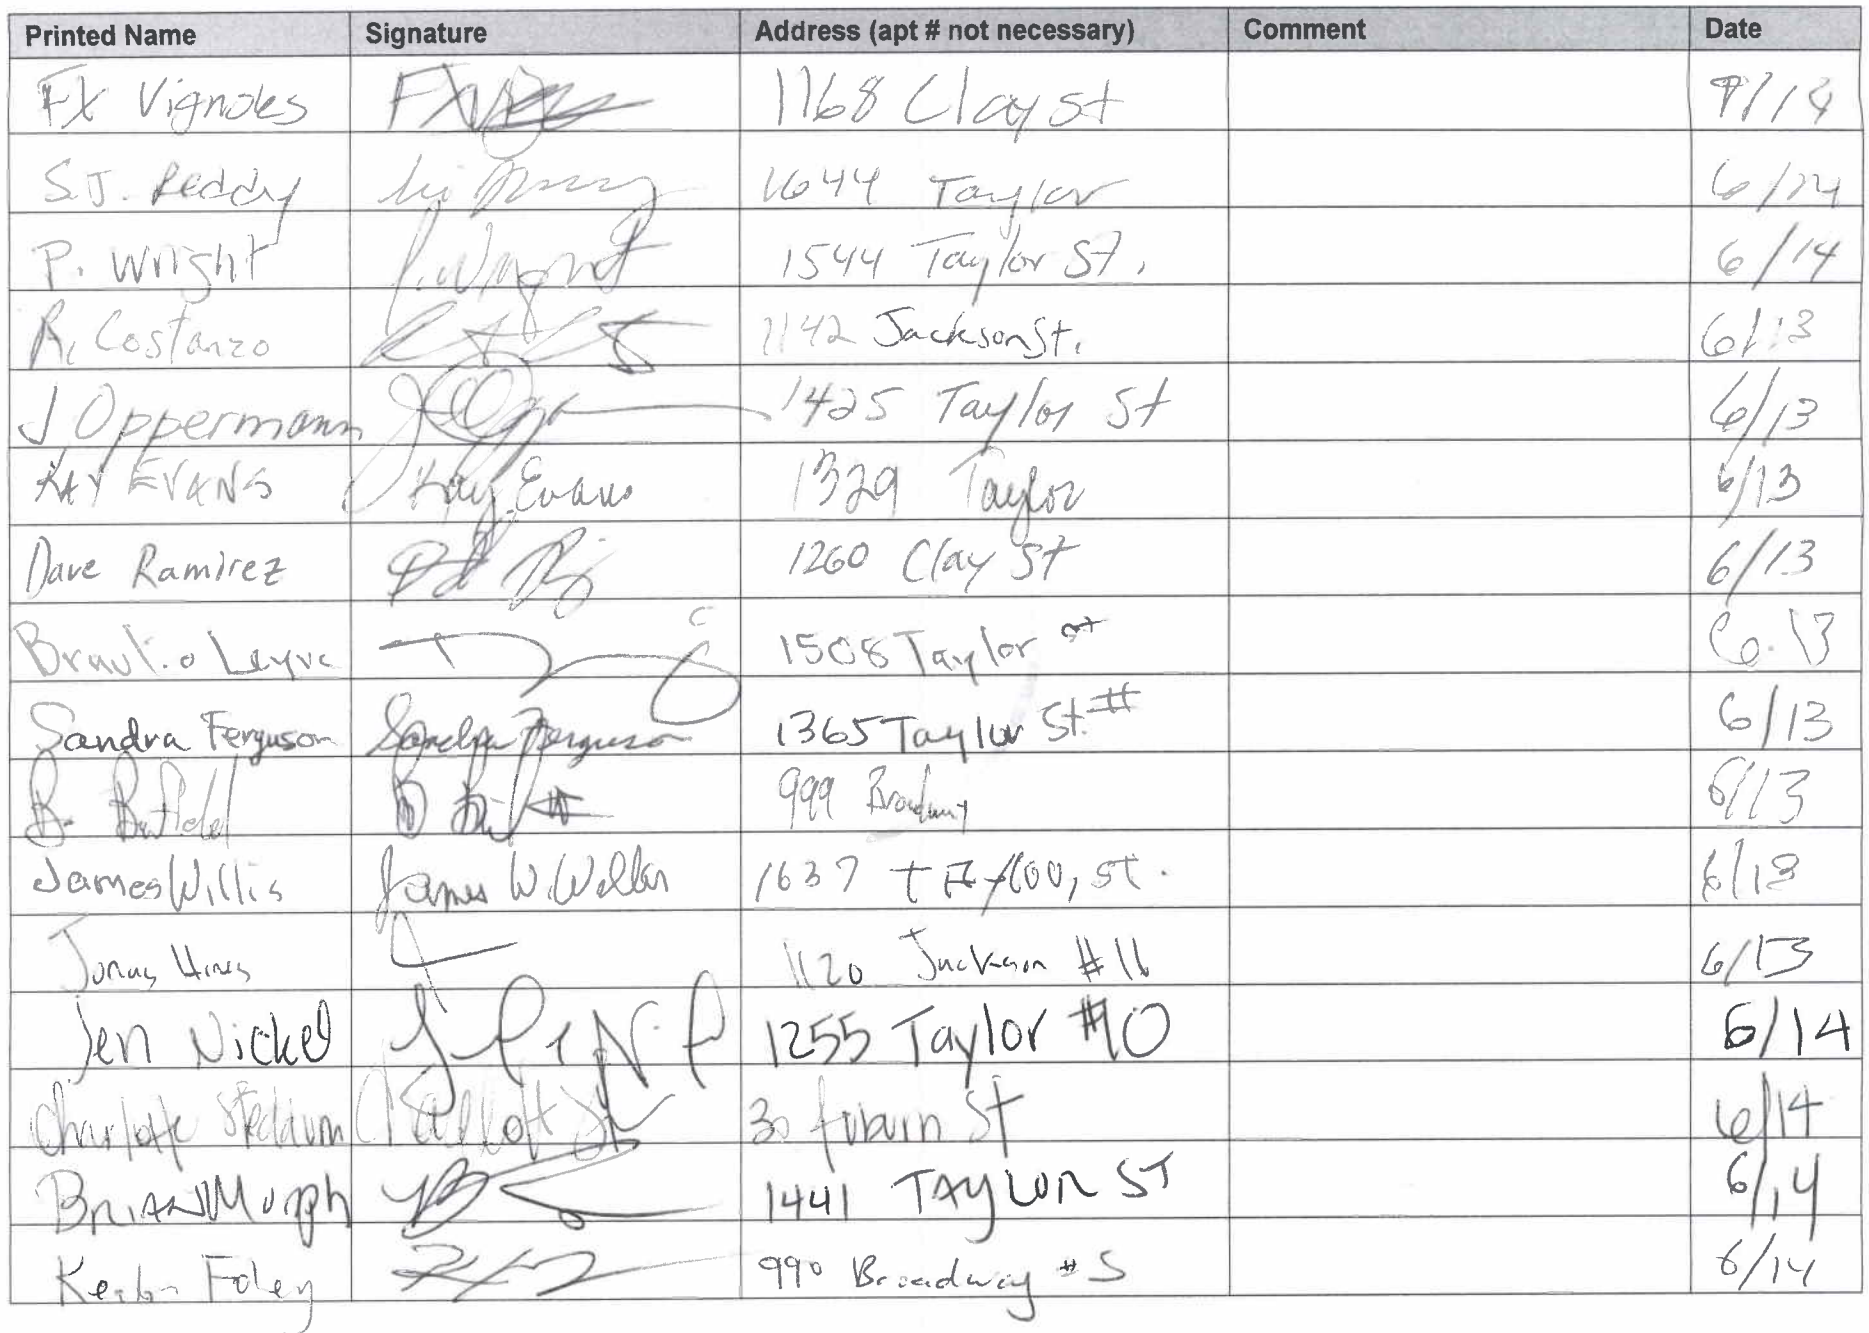 Printed Name Signature Address (apt # not necessary) Comment Date
FX Vignoles FX 1168 Clay st /14
S.J. Reddy 1644 Taylor 6/14
P. Wright P. Wright 1544 Taylor St. 6/14
R. Costanzo 1142 Jackson St. 6/13
J Oppermann 1425 Taylor St 6/13
KAY EVANS Kay Evans 1329 Taylor 6/13
Dave Ramirez 1260 Clay St 6/13
Braulio Leyva 1508 Taylor st 6.13
Sandra Ferguson Sandra Ferguson 1365 Taylor St. # 6/13
B. 999 Broadway 6/13
James Willis James W. 1637 st. 6/13
Jonas Hines 1120 Jackson #11 6/13
Jen Nickel 1255 Taylor #10 6/14
Charlotte 30 Auburn St 6/14
BRIAN Murph 1441 TAYLOR ST 6/14
Foley 990 Broadway #5 6/14